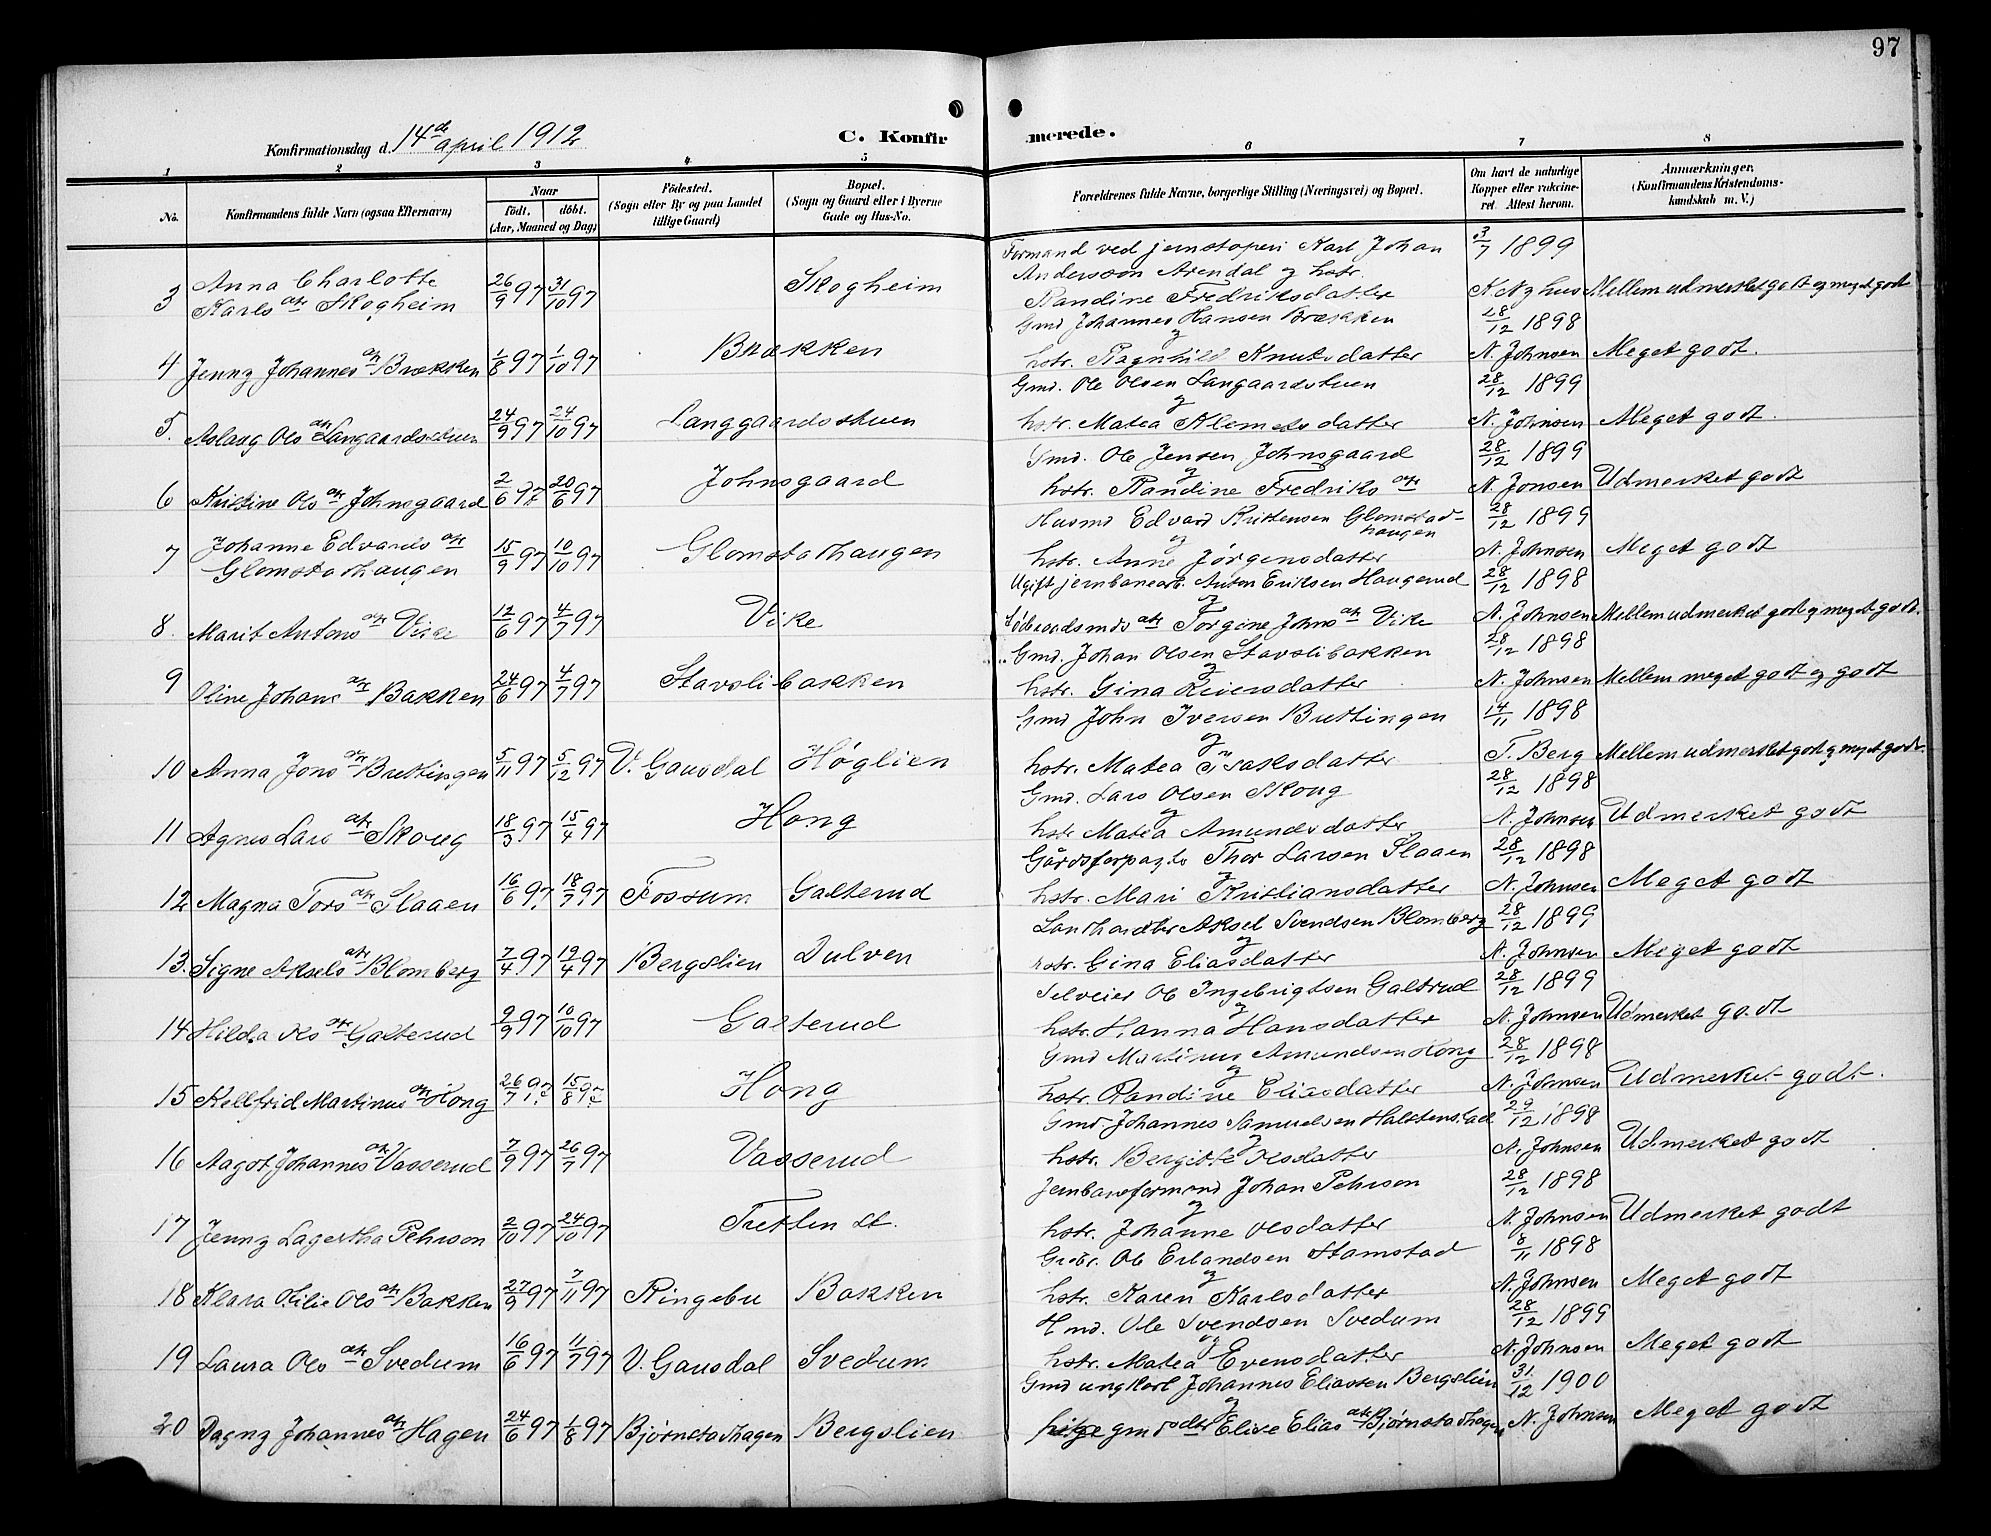 97
Konfirmationsdag d. 14de april 1912
C. Konfirmerede.
1 2 3 4 5 6 7 8
No.
Konfirmandens fulde Navn (ogsaa Efternavn)
Naar
født. døbt.
(Aar, Maaned og Dag)
Fødested.
(Sogn eller By og paa Landet
tillige Gaard)
Bopæl.
(Sogn og Gaard eller i Byerne
Gade og Hus-No.
Forældrenes fulde Navne, borgerlige Stilling (Næringsvei) og Bopæl.
Om havt de naturlige
Kopper eller vaccine-
ret. Attest herom.
Anmærkninger.
(Konfirmandens Kristendoms-
kundskab m. V.)
Formand ved jernstøperi Karl Johan 3/7 1899
Anna Charlotte Andersson Arendal og hstr.
3 Karlsdtr Skogheim 26/9 97 31/10 97 Skogheim Randine Fredriksdatter K Nyhus Mellem udmerket godt og meget godt
Gmd Johannes Hansen Brækken 28/12 1898
og
4 Jenny Johannesdtr Brækken 1/8 97 1/10 97 Brækken hstr. Ragnhild Knutsdatter N. Johnsen Meget godt.
Gmd. Ole Olsen Langaardsstuen 28/12 1899
og
5. Aslaug Olsdtr Langaardsstuen 24/9 97 24/10 97 Langgaardsstuen hstr. Matea Klemetsdatter N. Johnsen Meget godt.
Gmd. Ole Jensen Johnsgaard 28/12 1899
og
6 Kristine Olsdtr Johnsgaard 2/6 97 20/6 97 Johnsgaard hstr. Randine Fredriksdtr N. Jonsen Udmerket godt
Husmd Edvard Kristensen Glomstad- 28/12 1899
haugen
og
7 Johanne Edvardsdtr
Glomstadhaugen 15/9 97 10/10 97 Glomstadhaugen hstr. Anne Jørgensdatter N. Johnsen Meget godt
Ugift jernbanearb. Anton Eriksen Haugerud 28/12 1898
og
8. Marit Antonsdtr Vike 12/6 97 4/7 97 Vike dtr Torgine Johnsdtr Vike N. Johnsen Mellem udmerket godt og meget godt.
Gmd. Johan Olsen Stavslibakken 28/12 1898
og
9 Oline Johansdtr Bakken 24/6 97 4/7 97 Stavslibakken hstr. Gina Siversdatter N. Johnsen Mellem meget godt og godt
Gmd John Iversen Brettingen 14/11 1898
og
10 Anna Jonsdtr Brettingen 5/11 97 5/12 97 V. Gausdal Høglien hstr. Matea Isaksdatter T. Berg Mellem udmerket godt og meget godt
Gmd. Lars Olsen Skoug 28/12 1898
og
11 Agnes Larsdtr Skoug 18/3 97 15/4 97 Hong hstr Matea Amundsdatter N. Johnsen Udmerket godt
Gårdsforpagter Thor Larsen Slaaen 28/12 1898
og
12 Magna Torsdtr Slaaen 16/6 97. 18/7 97 Fossum Galterud hstr. Mari Kristiansdatter N. Johnsen Meget godt
Landhandler Aksel Svendsen Blomberg 28/12 1899
og
13. Signe Akselsdtr Blomberg 7/4 97 19/4 97 Bergslien Dulven hstr. Gina Eliasdatter N. Johnsen Meget godt
Selveier Ole Ingebrigtsen Galtrud 28/12 1899
og
14 Hilda Olsdtr Galterud 9/9 97 10/10 97 Galterud hstr. Hanna Hansdatter N. Johnsen Udmerket godt
Gmd Martinus Amundsen Hong 28/12 1898
og
15 Kellfrid Martinusdtr Hong 26/7 97 15/8 97 Hong hstr. Randine Eliasdatter N. Johnsen Udmerket godt.
Gmd. Johannes Samuelsen Halstenstad 29/12 1898
og
16 Aagot Johannesdtr Vasserud 7/9 97 26/7 97 Vasserud hstr. Bergitte Olsdatter N. Johnsen Udmerket godt
Jernbaneformand Johan Pehrson 28/12 1898
og
17 Jenny Lagertha Pehrson 2/10 97 24/10 97 Tretten st. hstr. Johanne Olsdatter N. Johnsen Udmerket godt
Grdbr. Ole Erlandsen Stamstad 8/11 1898
og
18 Klara Otilie Olsdtr Bakken 27/9 97 7/11 97 Ringebu Bakken hstr. Karen Karlsdatter N. Johnsen Meget godt
Hmd. Ole Svendsen Svedum 28/12 1899
og
19 Laura Olsdtr Svedum 16/6 97 11/7 97 V. Gausdal Svedum hstr. Matea Evensdatter N. Johnsen Meget godt
Gmd ungkarl Johannes Eliassen Bergslien 31/12 1900
og
20 Dagny Johannesdtr Hagen 24/6 97 1/8 97 Bjørnstadhagen Bergslien pige gmdsdtr Elive Eliasdtr Bjørnstadhagen N. Johnsen Meget godt